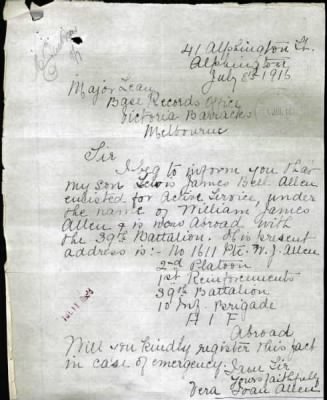 41 Alphington St.
Alphington
July 8th 1916
Major Lean
Base Records Office
Victoria Barracks
Melbourne
Sir
I beg to inform you that
my son Lewis James Beel Allen
enlisted for Active Service, under
the name of William James
Allen & is now Abroad with
the 39th Battalion. His present
address is:- No 1611 Pte. W. J. Allen
2nd Platoon
1st Reinforcements
39th Battalion
10 Inf. Brigade
A I F
Abroad
Will you kindly register this fact
in case of emergency.
I am Sir
Yours faithfully
Vera Joan Allen